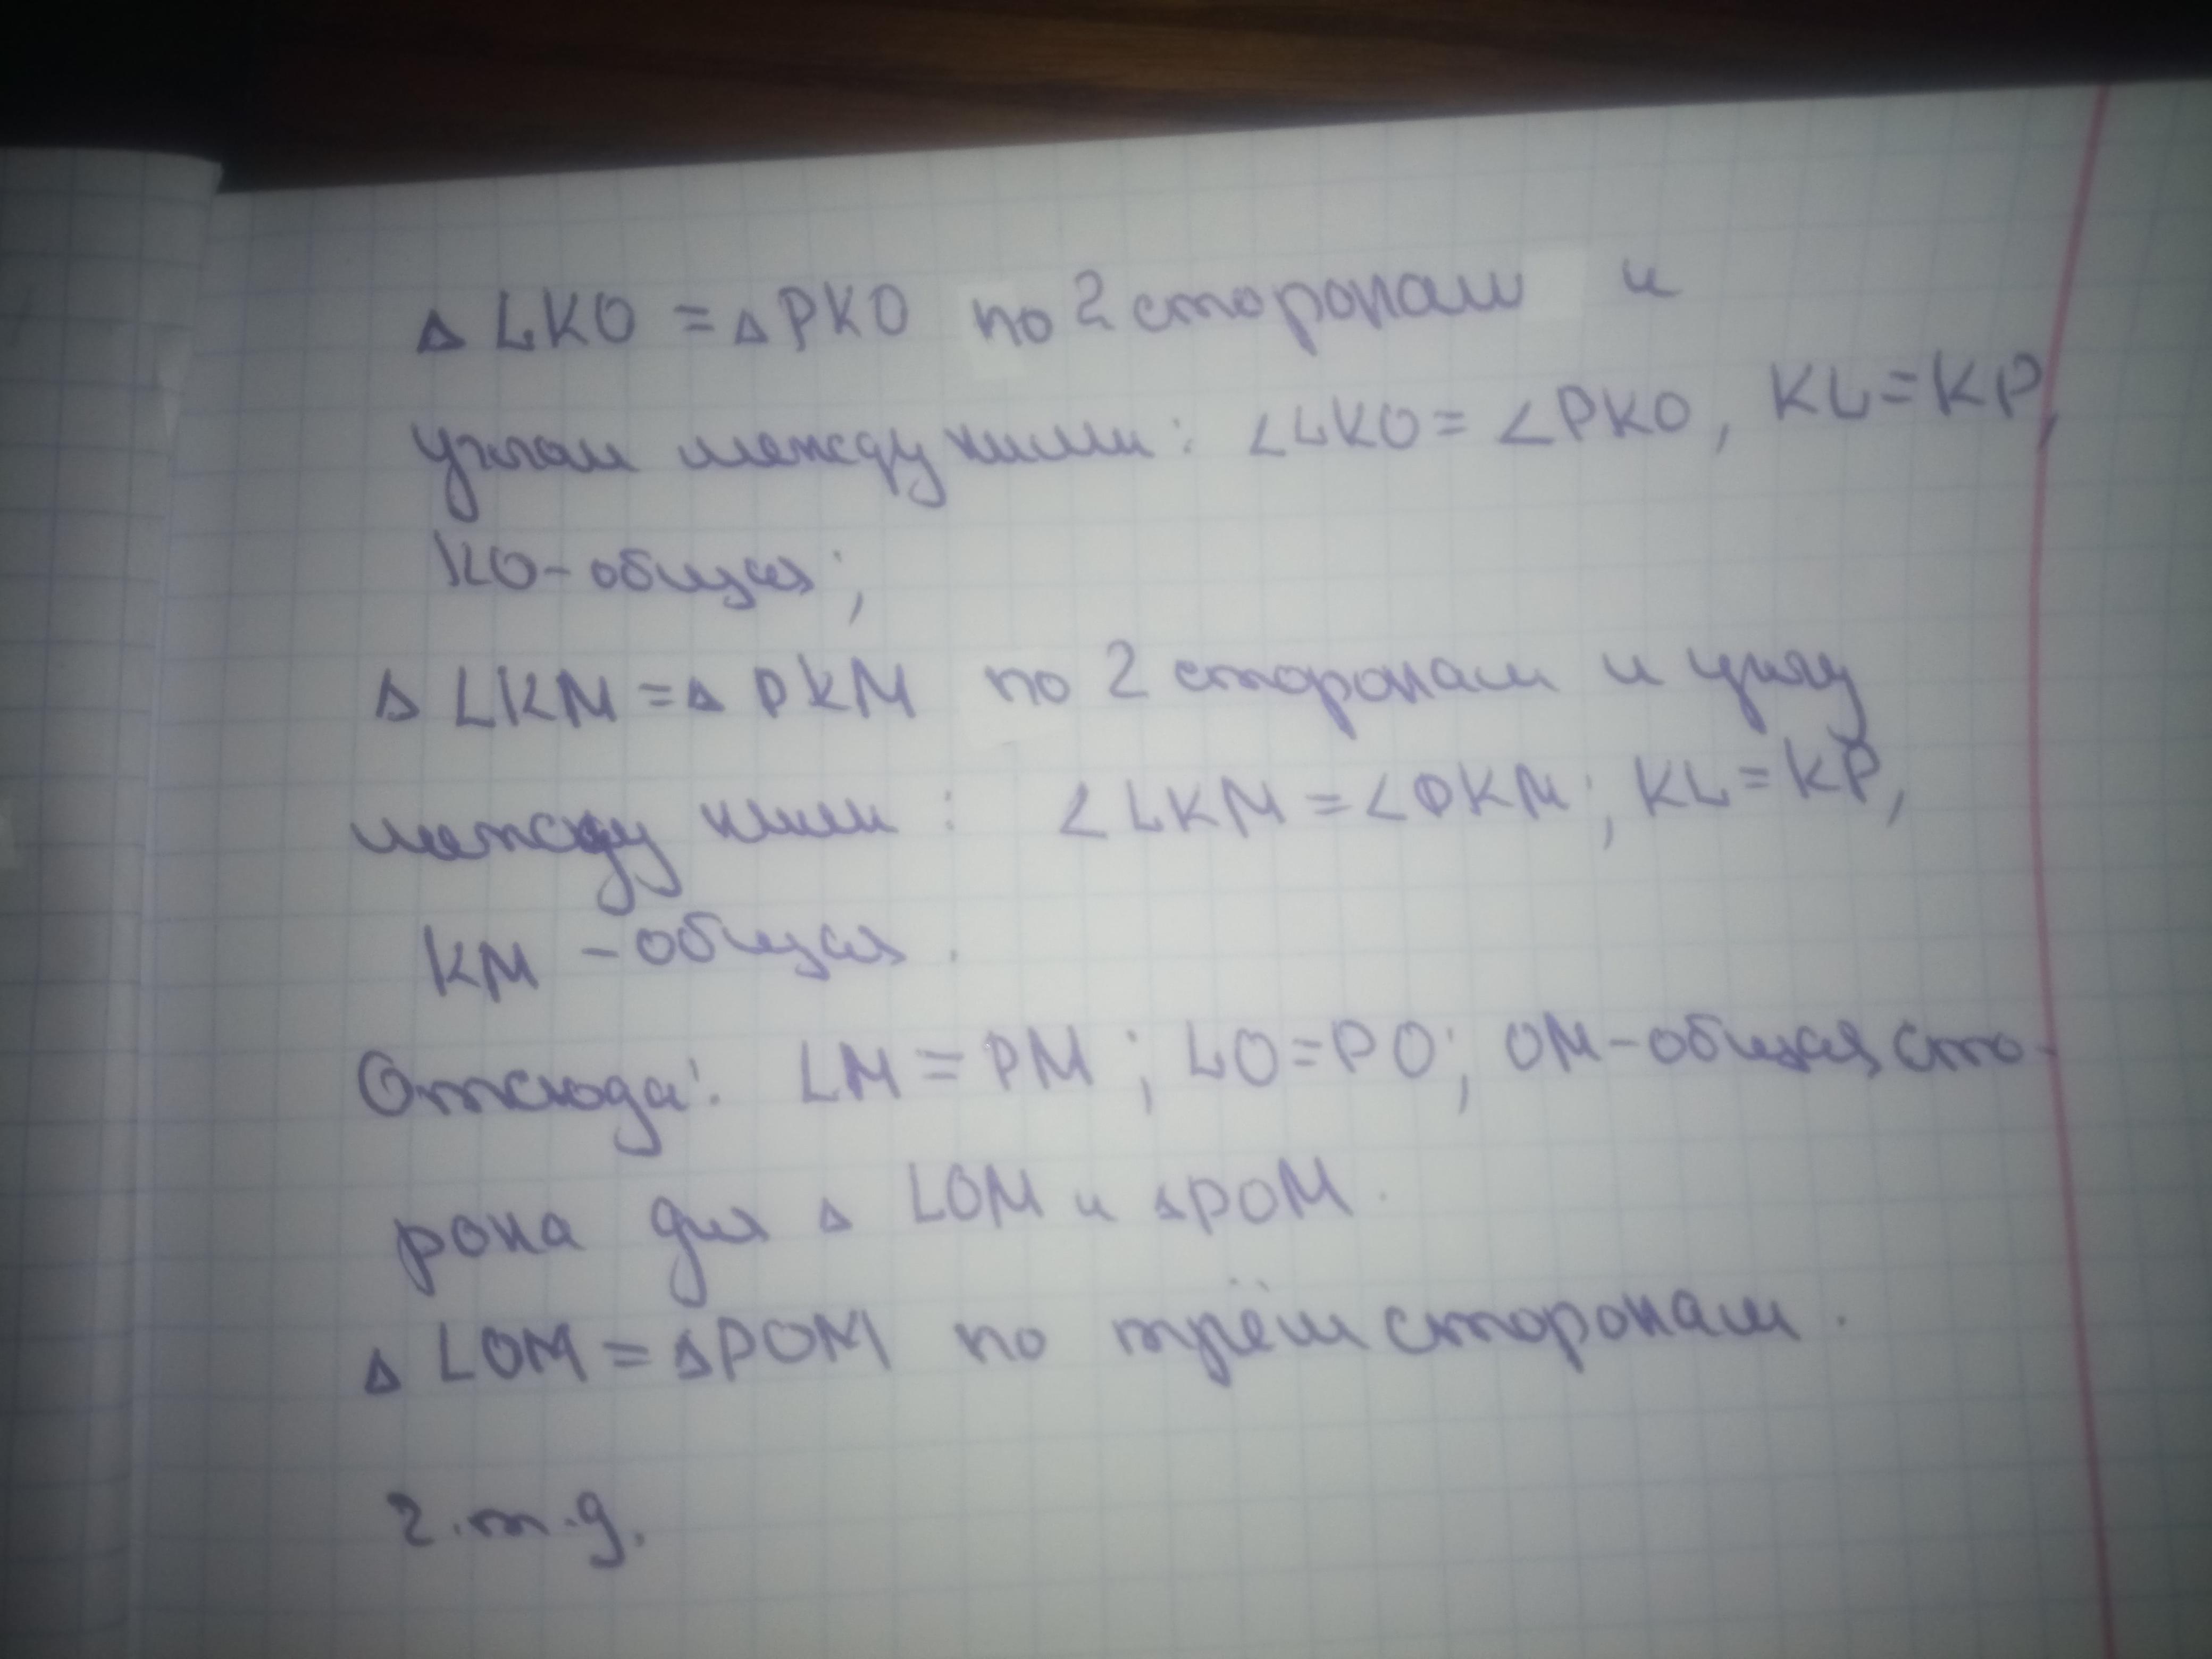 Δ LKO = Δ PKO по 2 сторонам и
углам между ними: ∠LKO = ∠PKO, KL = KP,
KO - общая;
Δ LKM = Δ PKM по 2 сторонам и углу
между ними: ∠LKM = ∠PKM; KL = KP,
KM - общая.
Отсюда: LM = PM; LO = PO; OM - общая сто-
рона для Δ LOM и ΔPOM.
Δ LOM = ΔPOM по трём сторонам.
ч.т.д.